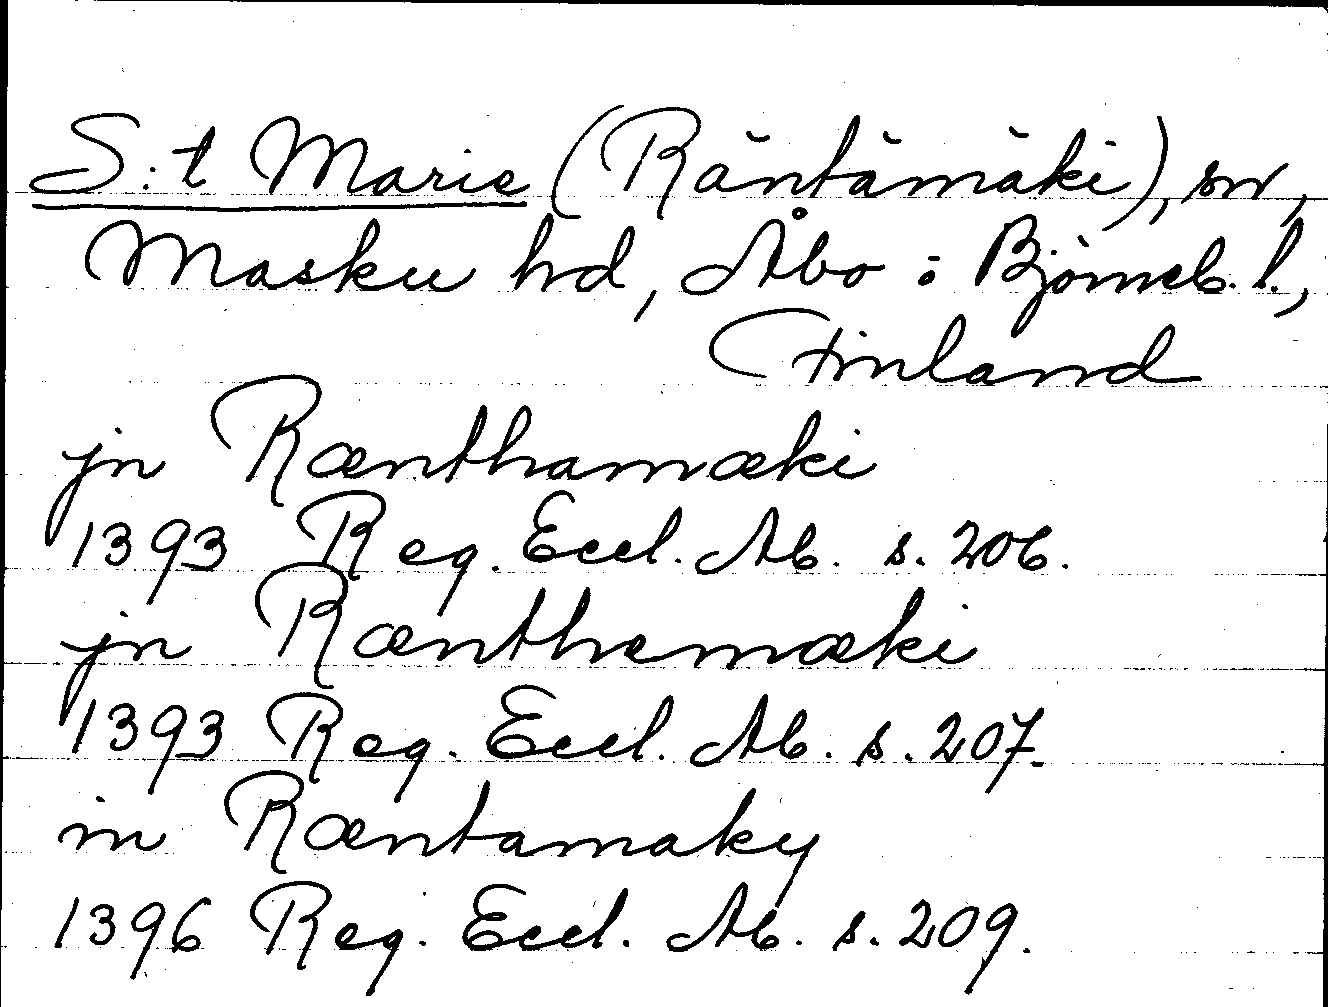 S:t Marie (Räntämäki), sn,
Masku hd, Åbo o Björneb. l.,
Finland
jn Rænthamæki
1393 Reg. Eccl. Ab. s. 206.
jn Rænthemæki
1393 Reg. Eccl. Ab. s. 207.
in Ræntamaky
1396 Reg. Eccl. Ab. s. 209.